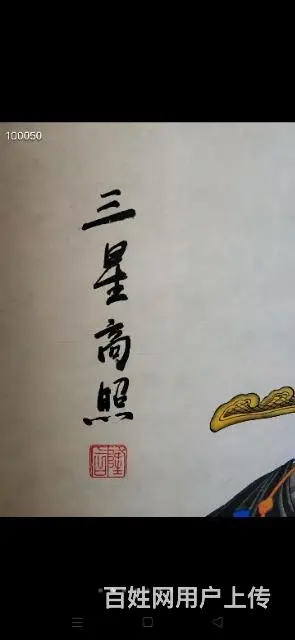 100050
三星高照
百姓网用户上传